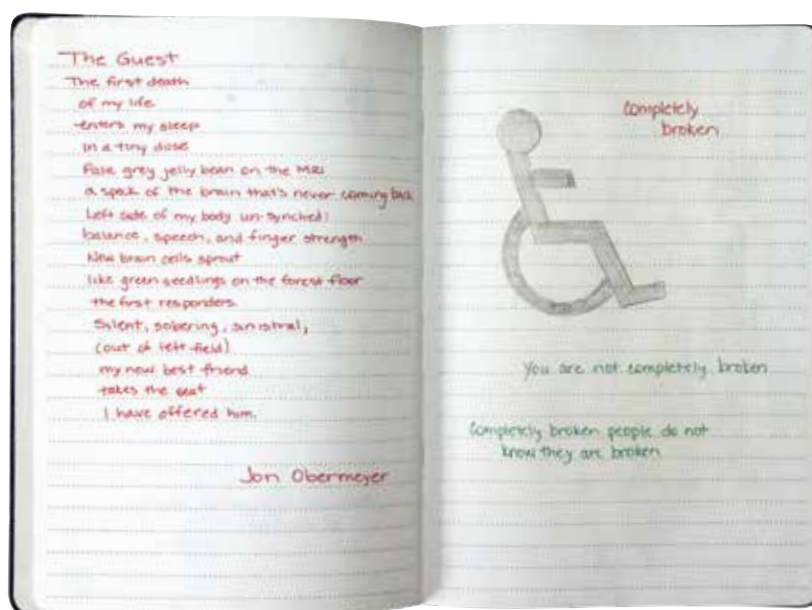 The Guest
The first death
of my life
enters my sleep
in a tiny dose
Pale grey jelly bean on the MRI
a speck of the brain that's never coming back
Left side of my body un-synched:
balance, speech, and finger strength
New brain cells sprout
like green seedlings on the forest floor
the first responders.
Silent, sobering, sinistral,
(out of left-field)
my new best friend
takes the seat
I have offered him.
Jon Obermeyer
Completely
broken
You are not completely broken
Completely broken people do not
know they are broken